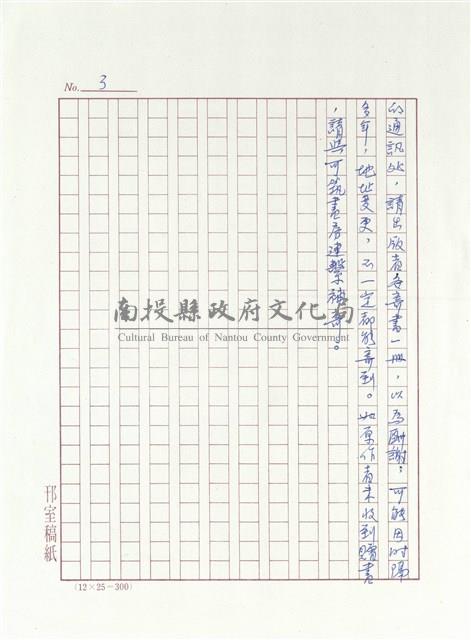 No. 3
的通訊处，請出版者各寄書一冊，以為酬謝；可能因時隔
多年，地址變更，不一定都能寄到。如原作者未收到贈書
，請與可筑書房連繫補寄。
南投縣政府文化局
Cultural Bureau of Nantou County Government
邗室稿紙
(12×25=300)